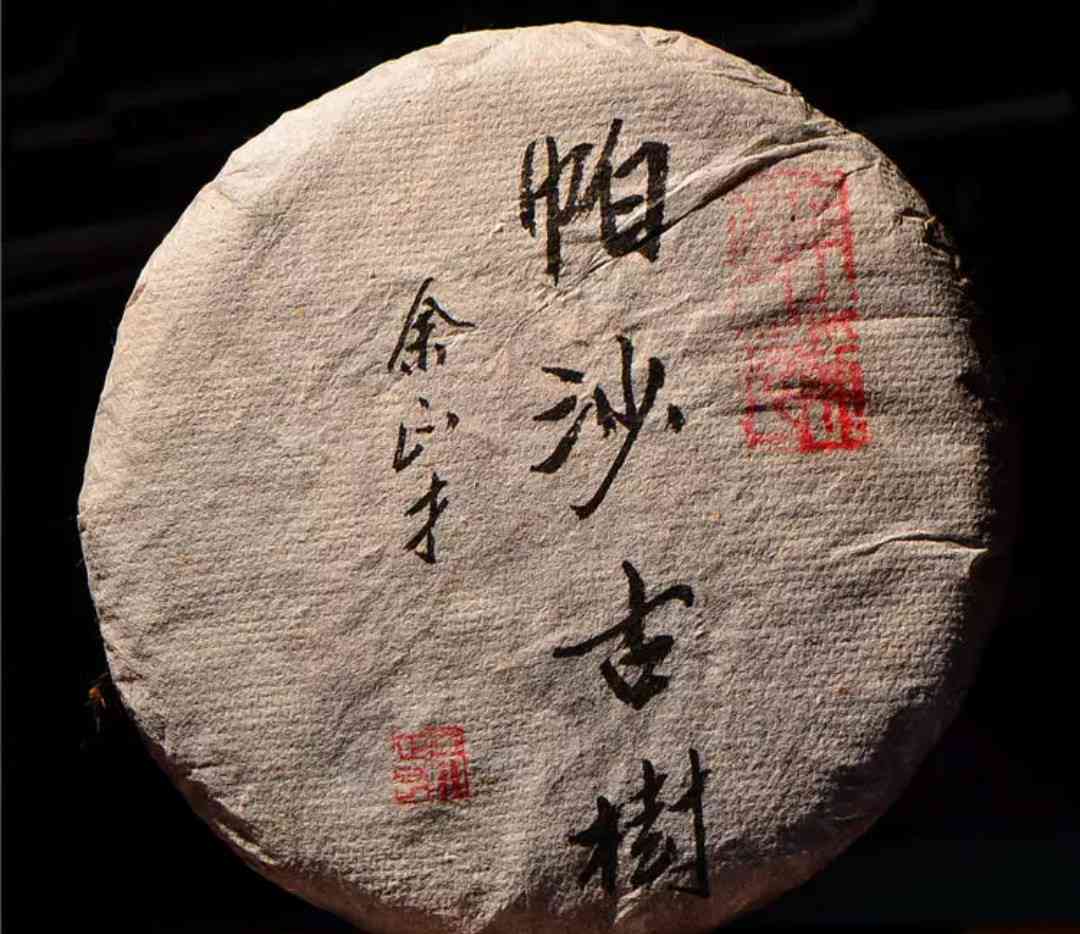 帕沙古樹
余正才